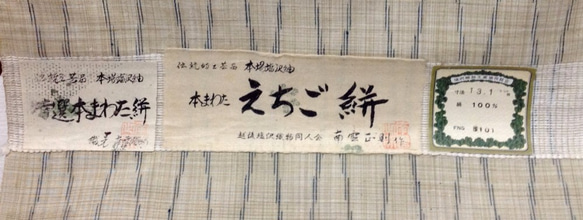 伝統的工芸品 本場塩沢紬
特選本まわた絣
伝統的工芸品 本場塩沢紬
本まわた えちご絣
越後塩沢織物同人会 南雲正則作
13.1
絹 100%